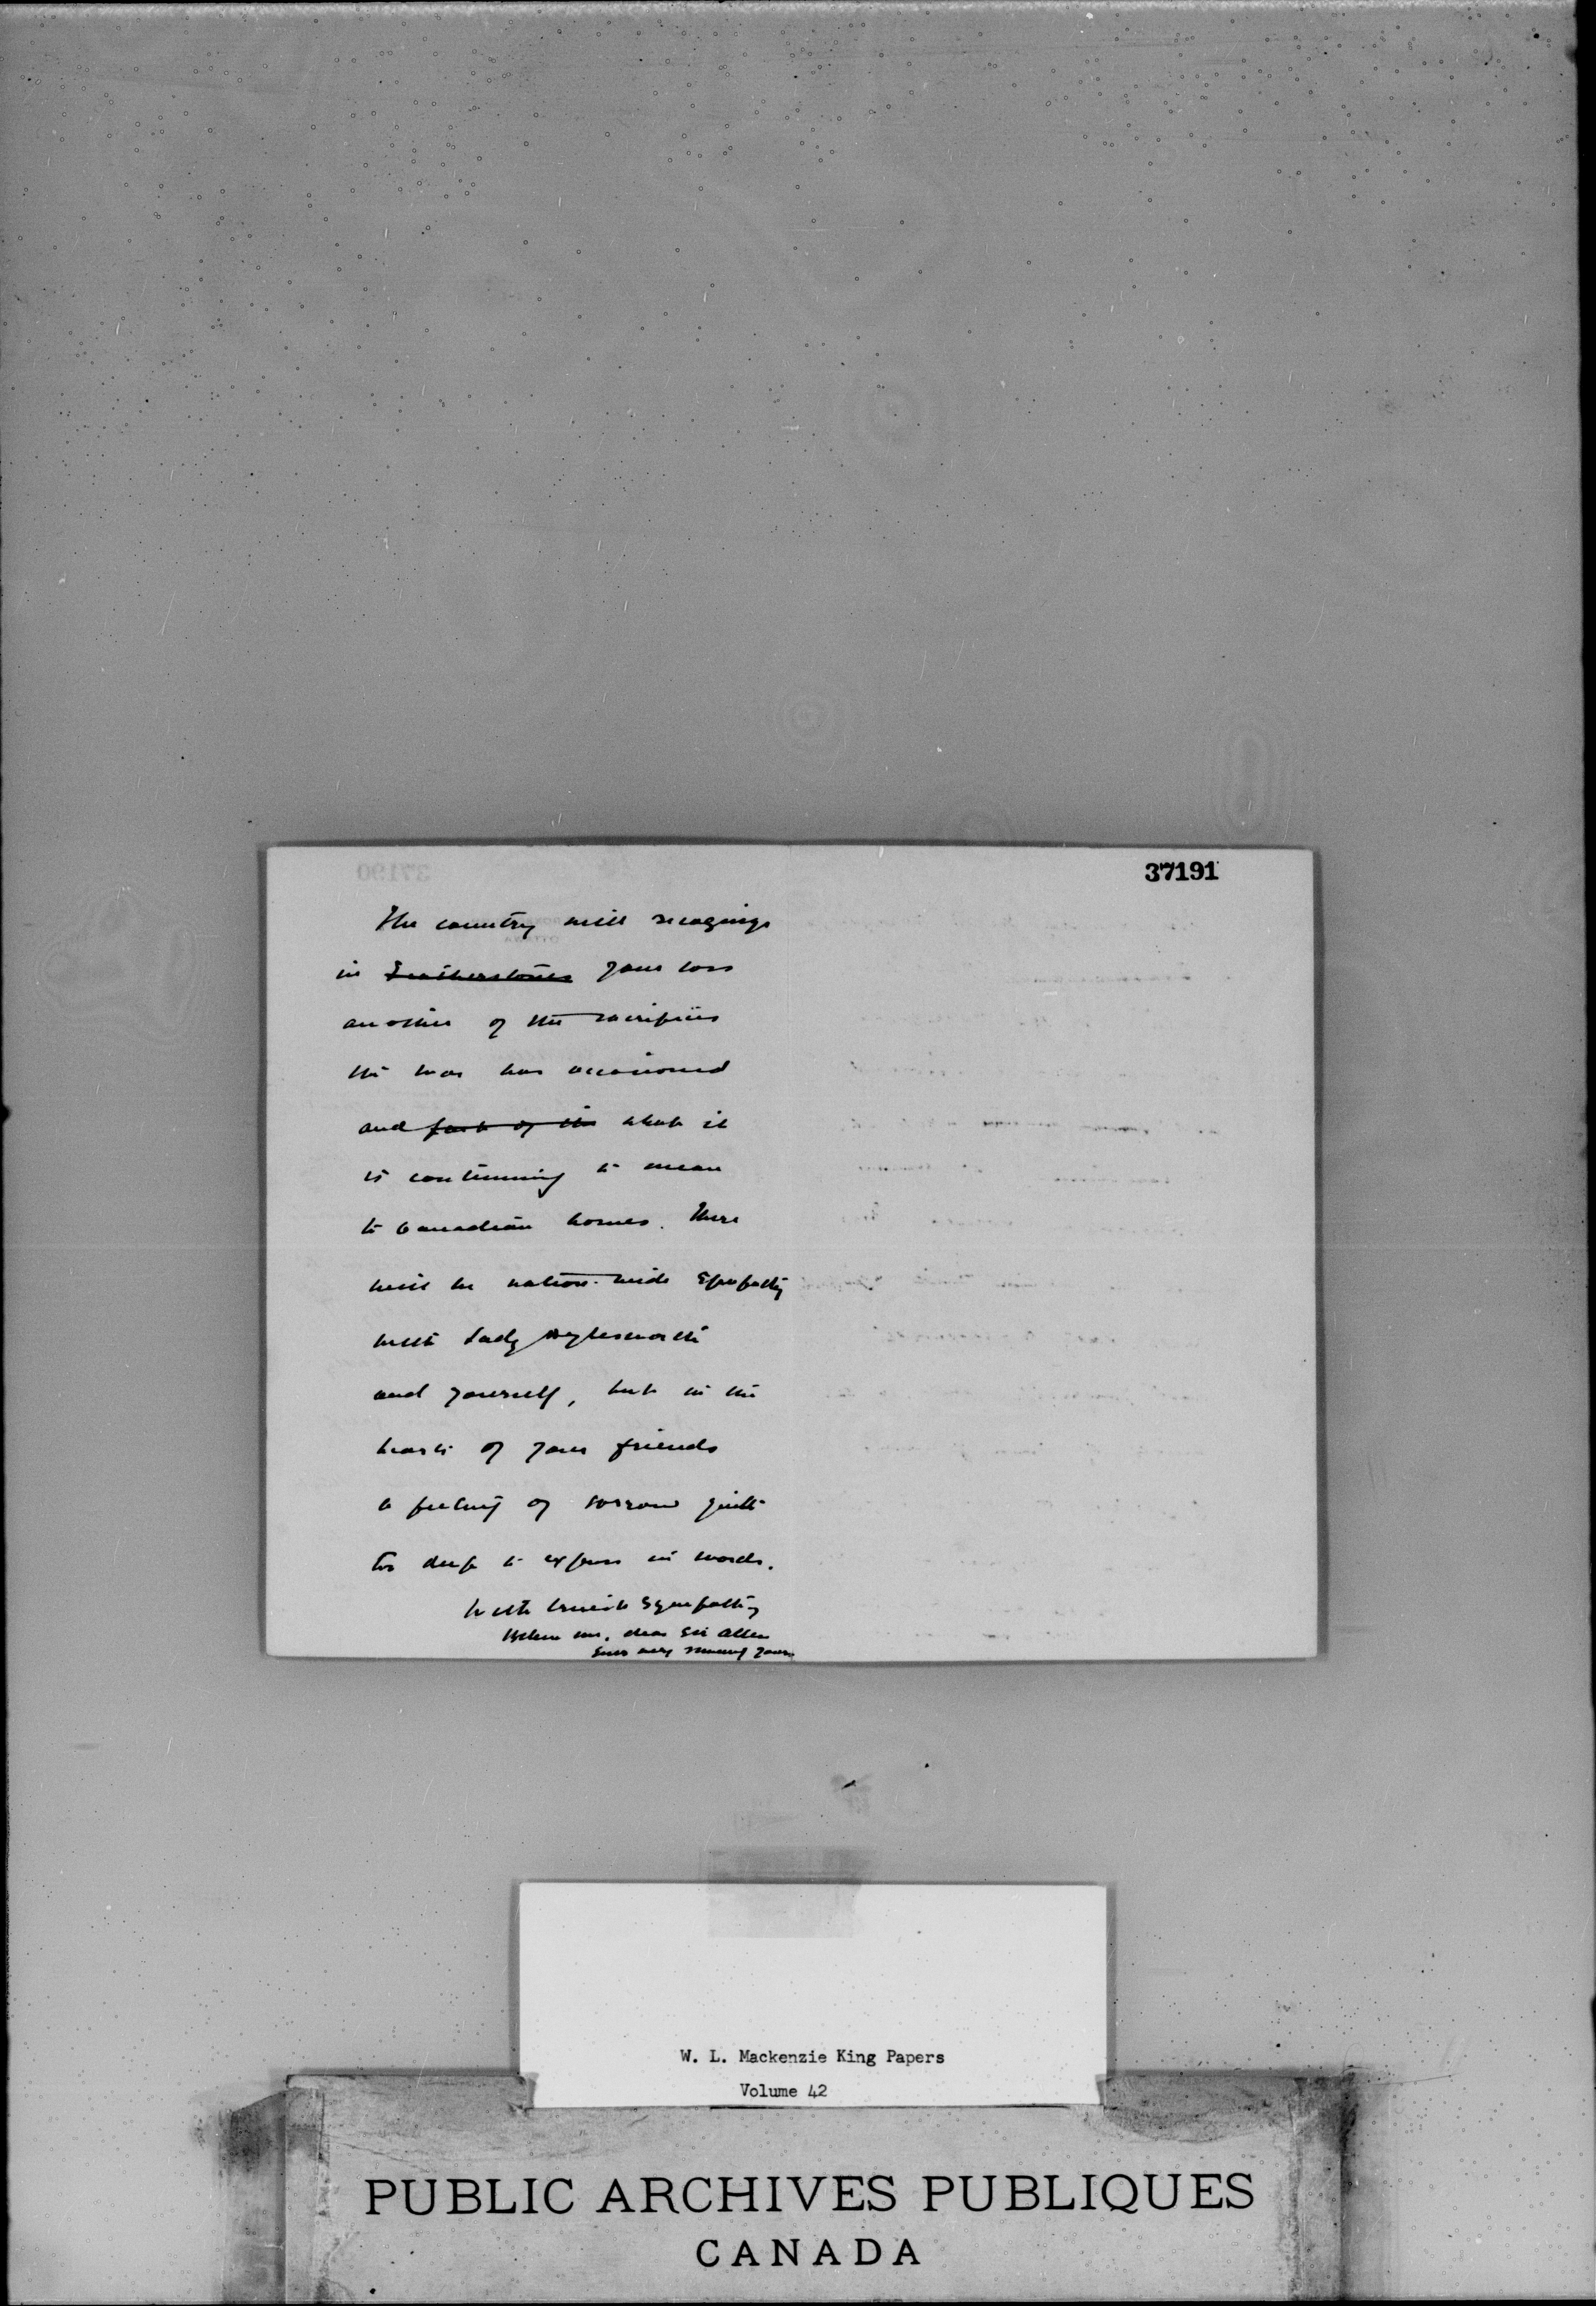 37191
The country will recognize
in Featherstones your loss
another of the sacrifices
the war has occasioned
and part of the what it
is continuing to mean
to Canadian homes. There
will be nation-wide sympathy
with Lady Aylesworth
and yourself, but in the
hearts of your friends
a feeling of sorrow quite
too deep to express in words.
With truest sympathy
Believe me, dear Sir Allen
Ever very sincerely yours
W. L. Mackenzie King Papers
Volume 42
PUBLIC ARCHIVES PUBLIQUES
CANADA